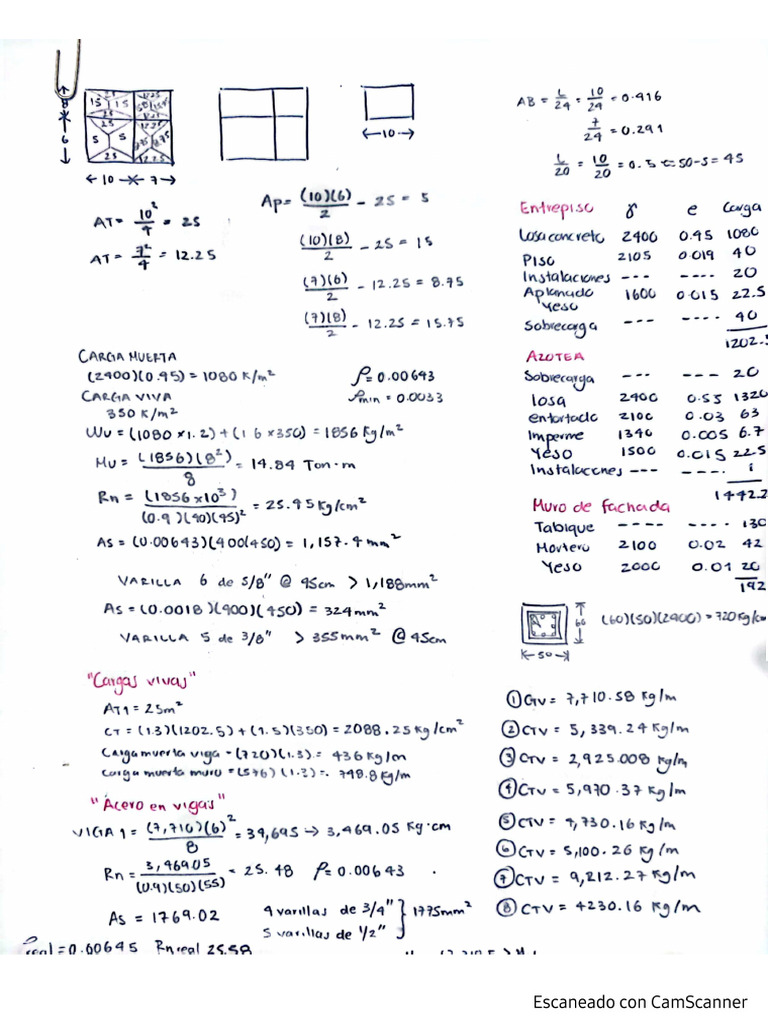 8
6
25
15 | 15
25
25
5 5
25
12.25
12.25
12.25
8.75 8.75
12.25
← 10 → ← 7 →
←10→
AT = 10²/4 = 25
AT = 7²/4 = 12.25
Ap = (10)(6)/2 - 25 = 5
(10)(8)/2 - 25 = 15
(7)(6)/2 - 12.25 = 8.75
(7)(8)/2 - 12.25 = 15.75
AB = L/24 = 10/24 = 0.416
7/24 = 0.291
L/20 = 10/20 = 0.5 = 50-5 = 45
Entrepiso γ e Carga
Losa concreto 2400 0.45 1080
Piso 2105 0.019 40
Instalaciones --- ---- 20
Aplanado Yeso 1600 0.015 22.5
Sobrecarga --- ---- 40
1202.5
AZOTEA
Sobrecarga --- --- 20
losa 2400 0.55 1320
entortado 2100 0.03 63
Imperme 1340 0.005 6.7
Yeso 1500 0.015 22.5
Instalaciones --- ---
1442.2
Muro de fachada
Tabique ---- ----
Mortero 2100 0.02 42
Yeso 2000 0.01 20
192
60
50
(60)(50)(2400) = 720 Kg/
CARGA MUERTA
(2400)(0.45) = 1080 K/m²
CARGA VIVA
350 K/m²
ρ = 0.00643
ρmin = 0.0033
Wu = (1080 × 1.2) + (1.6 × 350) = 1856 Kg/m²
Mu = (1856)(8²)/8 = 14.84 Ton·m
Rn = (1856 × 10³)/(0.9)(40)(45)² = 25.45 Kg/cm²
As = (0.00643)(400)(450) = 1,157.4 mm²
VARILLA 6 de 5/8" @ 45cm > 1,188mm²
As = (0.0018)(400)(450) = 324mm²
VARILLA 5 de 3/8" > 355mm² @ 45cm
"Cargas vivas"
AT1 = 25m²
CT = (1.3)(1202.5) + (1.5)(350) = 2088.25 Kg/cm²
Carga muerta viga = (720)(1.3) = 436 Kg/m
carga muerta muro = (576)(1.3) = 748.8 Kg/m
"Acero en vigas"
VIGA 1 = (7,710)(6)²/8 = 34,695 → 3,469.05 Kg·cm
Rn = 3,469.05/(0.9)(50)(55) = 25.48 ρ = 0.00643
As = 1769.02 4 varillas de 3/4" } 1775mm²
5 varillas de 1/2"
① CTV = 7,710.58 Kg/m
② CTV = 5,339.24 Kg/m
③ CTV = 2,925.008 Kg/m
④ CTV = 5,970.37 Kg/m
⑤ CTV = 4,730.16 Kg/m
⑥ CTV = 5,100.26 Kg/m
⑦ CTV = 9,212.27 Kg/m
⑧ CTV = 4230.16 Kg/m
ρreal = 0.00645 Rn real 25.58
Escaneado con CamScanner